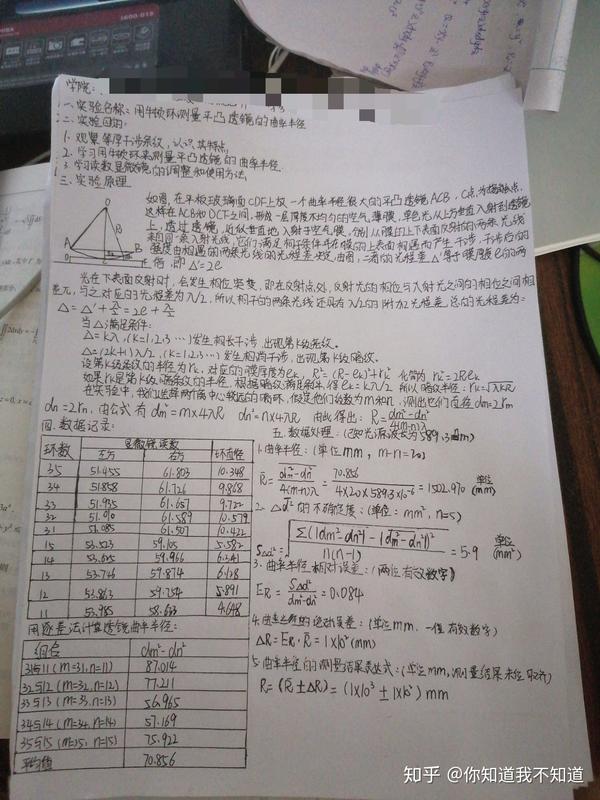 1600-019
学院:
一、实验名称:用牛顿环测量平凸透镜的曲率半径
二、实验目的:
1. 观察等厚干涉条纹,认识其特点
2. 学习用牛顿环来测量平凸透镜的曲率半径
3. 学习读数显微镜的调整和使用方法
三、实验原理
如图,在平板玻璃面CDF上放一个曲率半径很大的平凸透镜ACB,C点为接触点,
这样在ACB和DCF之间,形成一层厚度不均匀的空气薄膜,单色光从上方垂直入射到透镜
上,透过透镜,近似垂直地入射于空气膜,分别从膜的上下表面反射的两条光线
来自同一条入射光线,它们满足相干条件并在膜的上表面相遇而产生干涉,干涉后的
强度由相遇的两条光线的光程差决定,由图,二者的光程差Δ'等于膜厚度e的两
倍,即Δ'=2e
光在下表面反射时,会发生相位突变,即在反射处,反射光的相位与入射光之间的相位之间相
差π,与之对应的光程差为λ/2,所以相干的两条光线还具有λ/2的附加光程差,总的光程差为:
Δ=Δ'+λ/2=2e+λ/2
当Δ满足条件:
Δ=kλ,(k=1,2,3…)发生相长干涉,出现第k级亮纹。
Δ=(2k+1)λ/2,(k=1,2,3…)发生相消干涉,出现第k级暗纹。
设第k级条纹的半径为rk,对应的膜厚度为ek,R²=(R-ek)²+rk² 化简为 rk²=2Rek
如果rk是第k级暗条纹的半径,根据暗纹满足条件,得ek=kλ/2 所以暗纹半径:rk=√kλR
在实验中,我们选择两个离中心较远的暗环,假定他们级数为m和n,测出它们直径dm=2rm
dn=2rn,由公式有 dm²=m×4λR dn²=n×4λR 由此得出:R=(dm²-dn²)/4(m-n)λ
四.数据记录:
环数 显微镜读数 环直径
左方 右方
35 51.455 61.803 10.348
34 51.858 61.726 9.868
33 51.935 61.657 9.722
32 61.589 10.579
31 51.085 61.507 10.422
15 53.523 59.105 5.582
14
13
12 53.863 59.754 5.891
11 4.648
用逐差法计算透镜曲率半径:
组合 dm²-dn²
31与11(m=31,n=11) 87.014
32与12(m=32,n=12) 77.211
33与13(m=33,n=13) 56.965
34与14(m=34,n=14) 57.169
35与15(m=35,n=15) 75.922
平均值 70.856
五.数据处理:(已知光源波长为589.3nm)
1.曲率半径:(单位mm,m-n=20)
R=(dm²-dn²)/4(m-n)λ=70.856/(4×20×589.3×10⁻⁶)=1502.970 单位(mm)
2.Δd²的不确定度:(单位:mm²,n=5)
SΔd²=√(Σ((dm²-dn²)-(dm²-dn²))²/n(n-1))=5.9 单位(mm²)
3.曲率半径相对误差:(两位有效数字)
ER=SΔd²/(dm²-dn²)=0.084
4.曲率半径的绝对误差:(单位mm,一位有效数字)
ΔR=ER·R=1×10²(mm)
5.曲率半径的测量结果表达式:(单位mm,测量结果末位取齐)
R=(R±ΔR)=(1×10³±1×10²)mm
知乎 @你知道我不知道